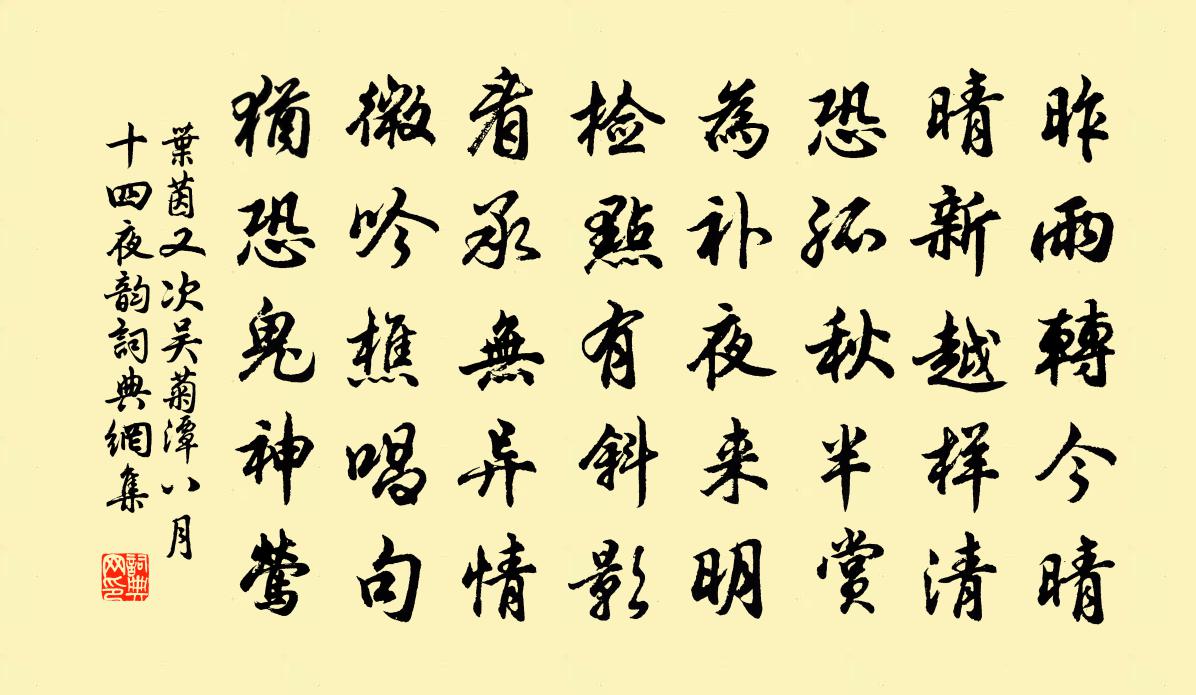 昨雨轉今晴
晴新越样清
恐孤秋半賞
為补夜来明
检點有斜影
看承無异情
微吟樵唱句
猶恐鬼神莺
葉茵又次吴菊潭八月
十四夜韵詞典網集
詞典网印